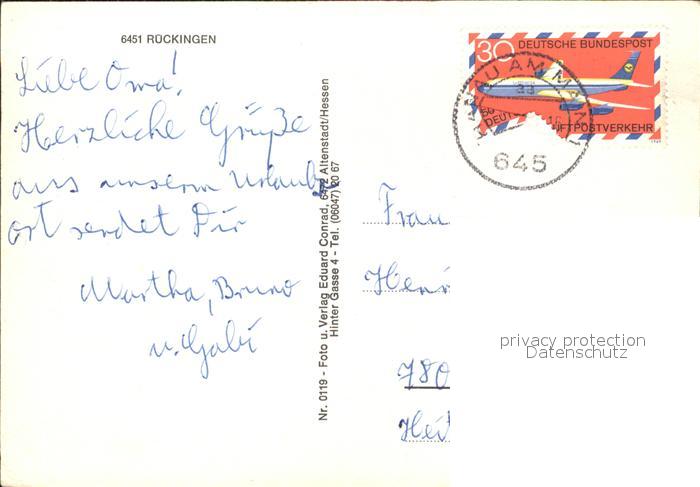 6451 RÜCKINGEN
Liebe Oma!
Herzliche Grüße
aus unserm Urlaubs
ort sendet Dir
Martha, Bruno
u. Gabi
Nr. 0119 - Foto u. Verlag Eduard Conrad, 6472 Altenstadt/Hessen
Hinter Gasse 4 - Tel. (06047) 20 67
30 DEUTSCHE BUNDESPOST
LUFTPOSTVERKEHR
HANAU AM MAIN 1
645
Frau
Henr
privacy protection
Datenschutz
780
Hei